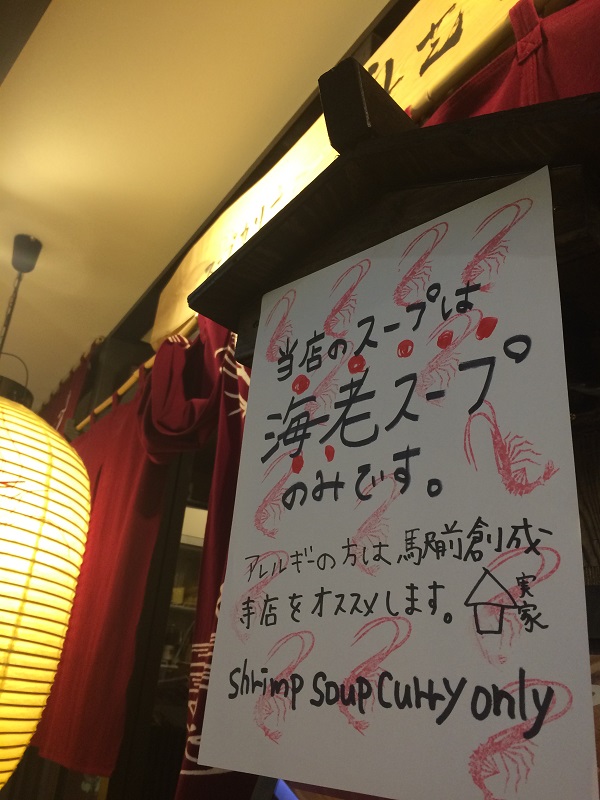 当店のスープは
海老スープ
のみです。
アレルギーの方は駅前創成
寺店をオススメします。
実家
shrimp soup curry only